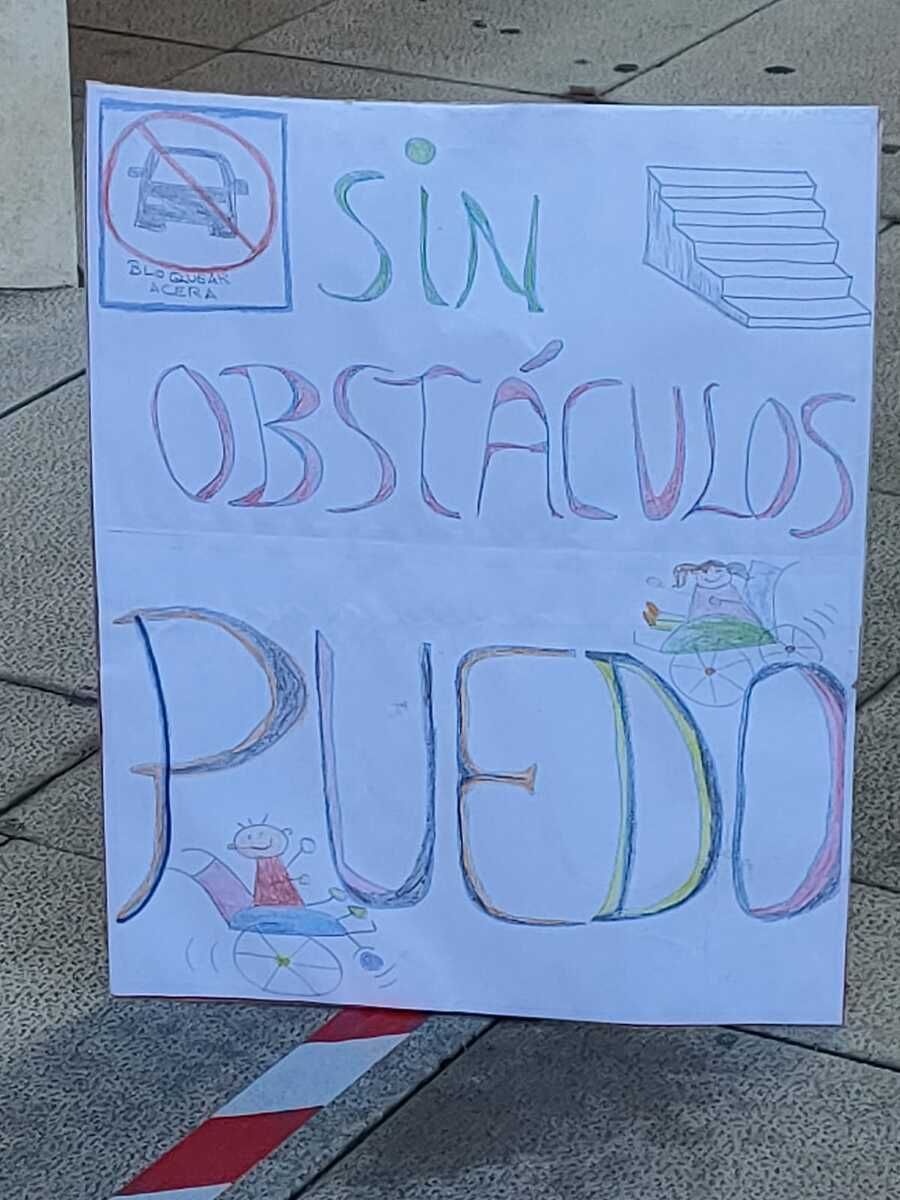 BLOQUEAR
ACERA
SiN
OBSTÁCULOS
PUEDO